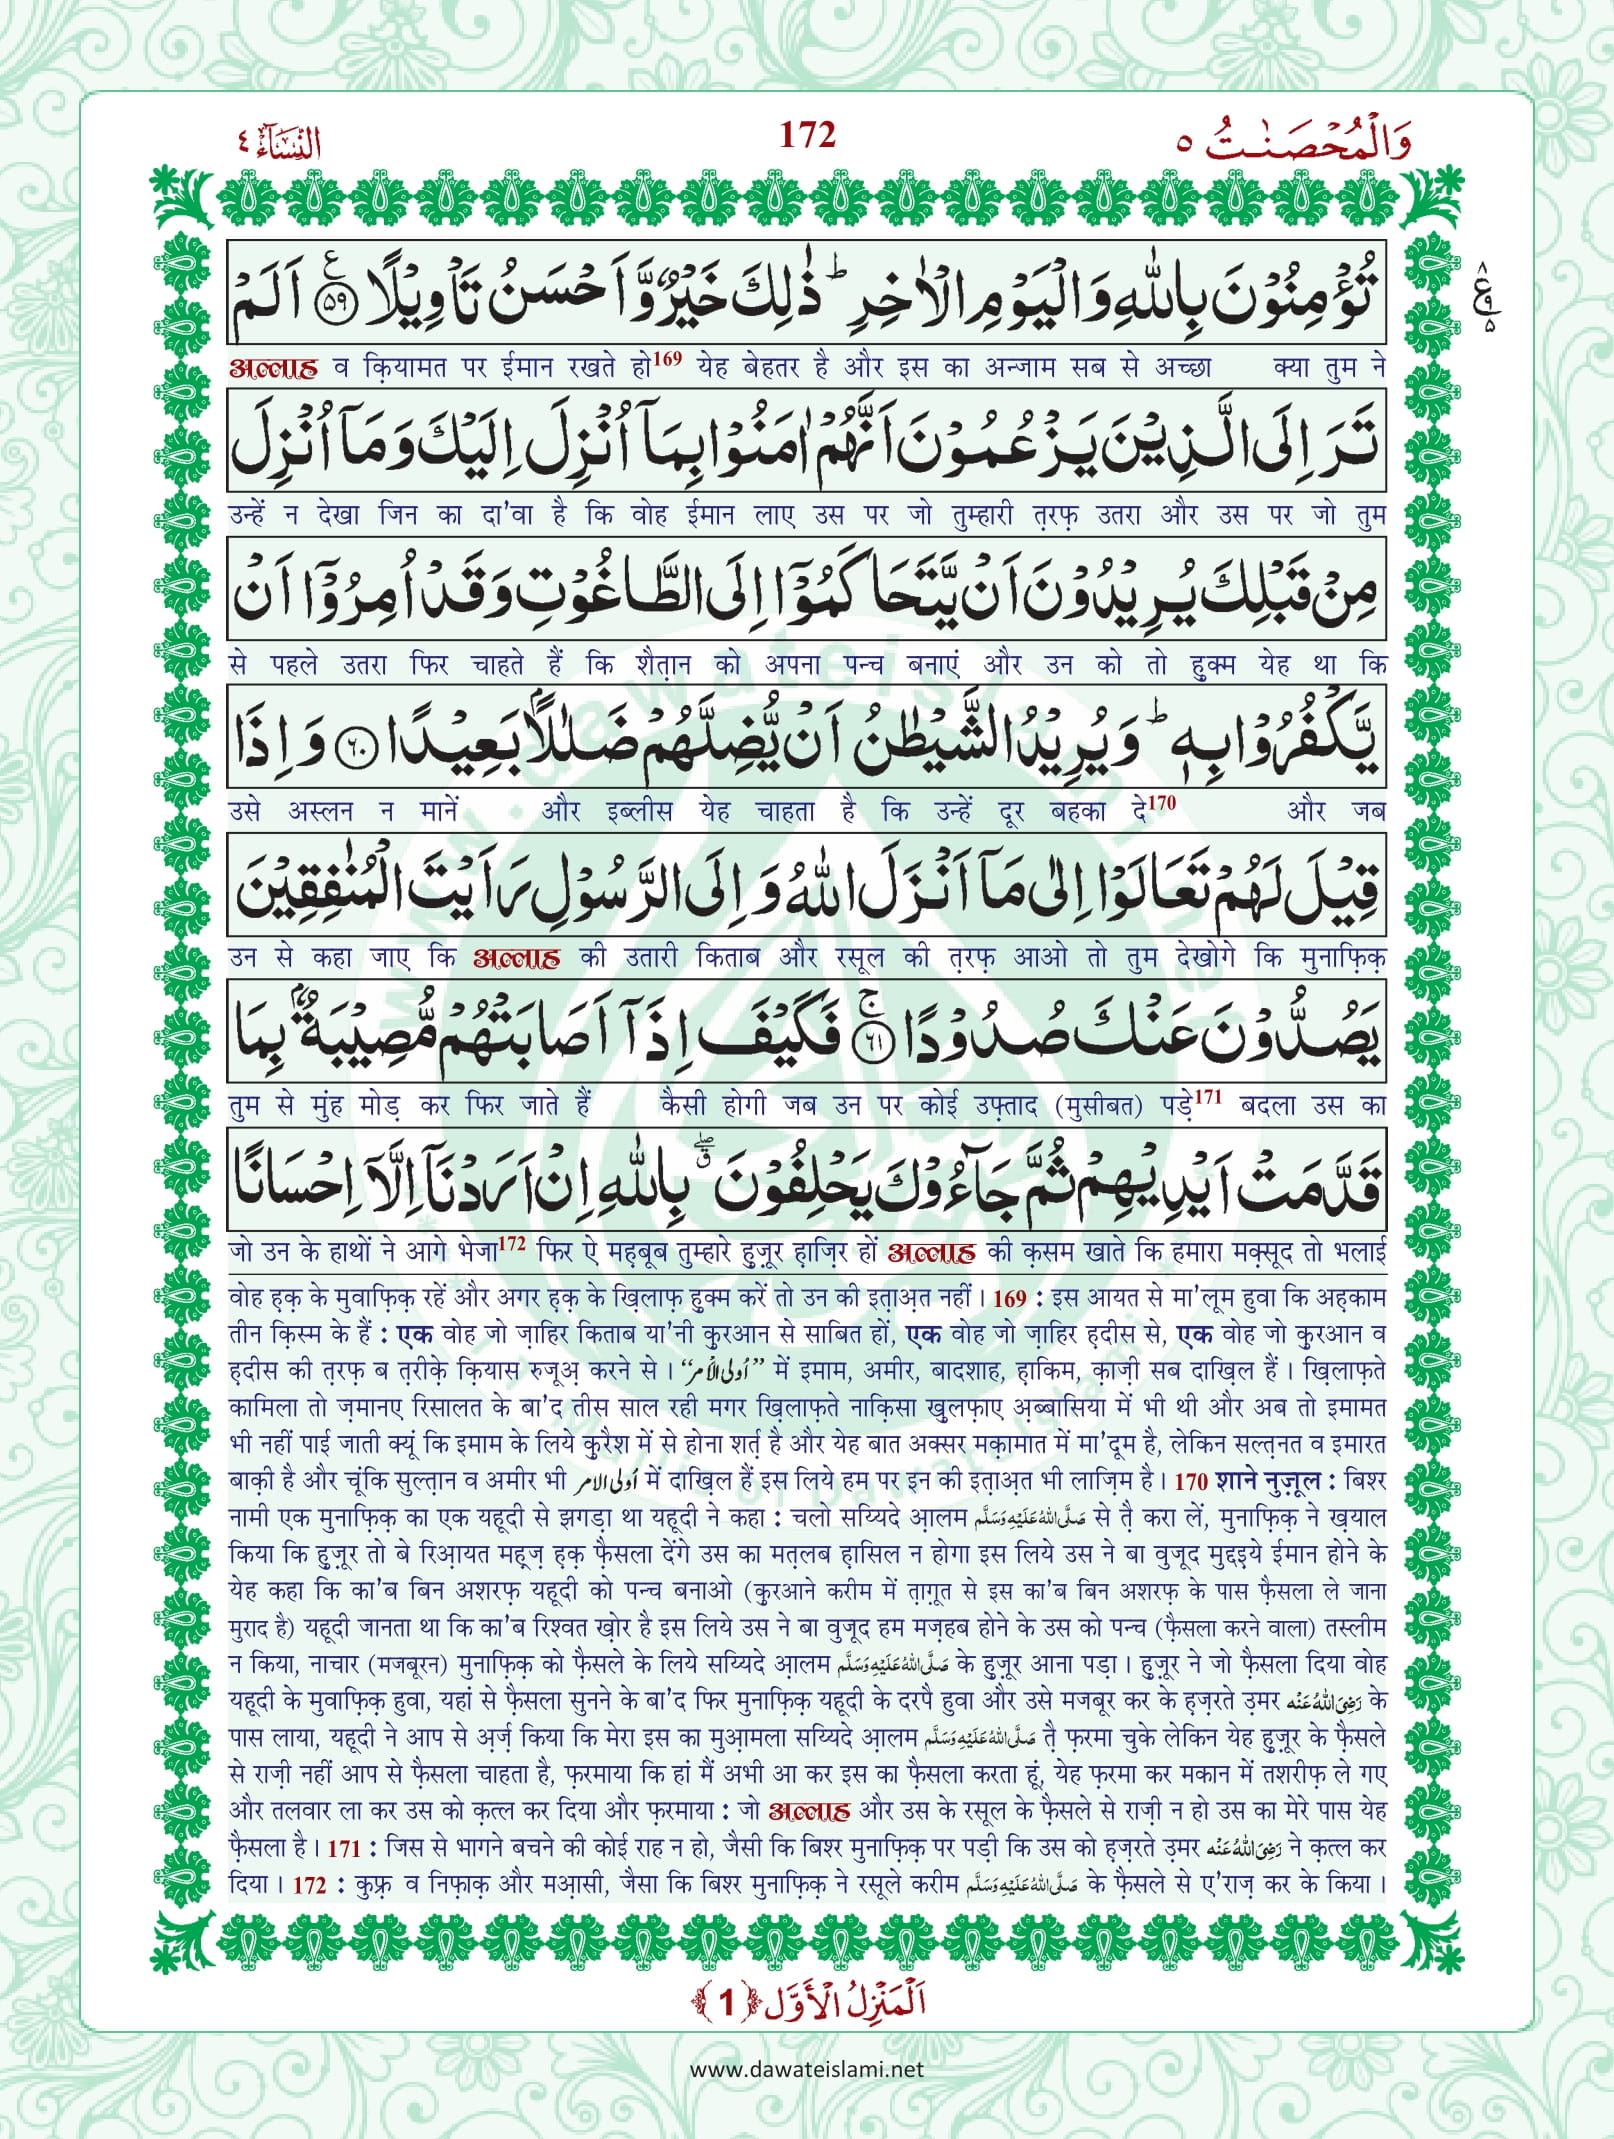 وَالْمُحْصَنٰتُ ٥
172
النِّسَآءِ ٤
تُؤْمِنُوْنَ بِاللّٰهِ وَالْيَوْمِ الْاٰخِرِ ؕ ذٰلِكَ خَيْرٌ وَّاَحْسَنُ تَاْوِيْلًا ﴿٥٩﴾ اَلَمْ
अल्लाह व क़ियामत पर ईमान रखते हो169 येह बेहतर है और इस का अन्जाम सब से अच्छा क्या तुम ने
تَرَ اِلَى الَّذِيْنَ يَزْعُمُوْنَ اَنَّهُمْ اٰمَنُوْا بِمَآ اُنْزِلَ اِلَيْكَ وَمَآ اُنْزِلَ
उन्हें न देखा जिन का दा'वा है कि वोह ईमान लाए उस पर जो तुम्हारी त़रफ़ उतरा और उस पर जो तुम
مِنْ قَبْلِكَ يُرِيْدُوْنَ اَنْ يَّتَحَاكَمُوْٓا اِلَى الطَّاغُوْتِ وَقَدْ اُمِرُوْٓا اَنْ
से पहले उतरा फिर चाहते हैं कि शैत़ान को अपना पन्च बनाएं और उन को तो ह़ुक्म येह था कि
يَّكْفُرُوْا بِهٖ ؕ وَيُرِيْدُ الشَّيْطٰنُ اَنْ يُّضِلَّهُمْ ضَلٰلًۢا بَعِيْدًا ﴿٦٠﴾ وَاِذَا
उसे अस्लन न मानें और इब्लीस येह चाहता है कि उन्हें दूर बहका दे170 और जब
قِيْلَ لَهُمْ تَعَالَوْا اِلٰى مَآ اَنْزَلَ اللّٰهُ وَاِلَى الرَّسُوْلِ رَاَيْتَ الْمُنٰفِقِيْنَ
उन से कहा जाए कि अल्लाह की उतारी किताब और रसूल की त़रफ़ आओ तो तुम देखोगे कि मुनाफ़िक़
يَصُدُّوْنَ عَنْكَ صُدُوْدًا ۚ﴿٦١﴾ فَكَيْفَ اِذَآ اَصَابَتْهُمْ مُّصِيْبَةٌۢ بِمَا
तुम से मुंह मोड़ कर फिर जाते हैं कैसी होगी जब उन पर कोई उफ़्ताद (मुसीबत) पड़े171 बदला उस का
قَدَّمَتْ اَيْدِيْهِمْ ثُمَّ جَآءُوْكَ يَحْلِفُوْنَ ۖ بِاللّٰهِ اِنْ اَرَدْنَآ اِلَّآ اِحْسَانًا
जो उन के हाथों ने आगे भेजा172 फिर ऐ मह़बूब तुम्हारे हु़ज़ूर ह़ाज़िर हों अल्लाह की क़सम खाते कि हमारा मक़्सूद तो भलाई
वोह ह़क़ के मुवाफ़िक़ रहें और अगर ह़क़ के ख़िलाफ़ ह़ुक्म करें तो उन की इत़ाअ़त नहीं। 169 : इस आयत से मा'लूम हुवा कि अह़काम
तीन क़िस्म के हैं : एक वोह जो ज़ाहिर किताब या'नी क़ुरआन से साबित हों, एक वोह जो ज़ाहिर ह़दीस से, एक वोह जो क़ुरआन व
ह़दीस की त़रफ़ ब त़रीक़े क़ियास रुजूअ़ करने से। ”اُولِی الْاَمْر“ में इमाम, अमीर, बादशाह, ह़ाकिम, क़ाज़ी सब दाख़िल हैं। ख़िलाफ़ते
कामिला तो ज़मानए रिसालत के बा'द तीस साल रही मगर ख़िलाफ़ते नाक़िसा ख़ुलफ़ाए अ़ब्बासिया में भी थी और अब तो इमामत
भी नहीं पाई जाती क्यूं कि इमाम के लिये क़ुरैश में से होना शर्त़ है और येह बात अक्सर मक़ामात में मा'दूम है, लेकिन सल्त़नत व इमारत
बाक़ी है और चूंकि सुल्त़ान व अमीर भी اُولِی الامر में दाख़िल हैं इस लिये हम पर इन की इत़ाअ़त भी लाज़िम है। 170 शाने नुज़ूल : बिश्र
नामी एक मुनाफ़िक़ का एक यहूदी से झगड़ा था यहूदी ने कहा : चलो सय्यिदे आ़लम صَلَّی اللّٰہُ عَلَیْہِ وَسَلَّم से त़ै करा लें, मुनाफ़िक़ ने ख़याल
किया कि हु़ज़ूर तो बे रिआ़यत मह़्ज़ ह़क़ फ़ैसला देंगे उस का मत़लब ह़ासिल न होगा इस लिये उस ने बा वुजूद मुद्दइये ईमान होने के
येह कहा कि का'ब बिन अशरफ़ यहूदी को पन्च बनाओ (क़ुरआने करीम में त़ाग़ूत से इस का'ब बिन अशरफ़ के पास फ़ैसला ले जाना
मुराद है) यहूदी जानता था कि का'ब रिश्वत ख़ोर है इस लिये उस ने बा वुजूद हम मज़हब होने के उस को पन्च (फ़ैसला करने वाला) तस्लीम
न किया, नाचार (मजबूरन) मुनाफ़िक़ को फ़ैसले के लिये सय्यिदे आ़लम صَلَّی اللّٰہُ عَلَیْہِ وَسَلَّم के हु़ज़ूर आना पड़ा। हु़ज़ूर ने जो फ़ैसला दिया वोह
यहूदी के मुवाफ़िक़ हुवा, यहां से फ़ैसला सुनने के बा'द फिर मुनाफ़िक़ यहूदी के दरपै हुवा और उसे मजबूर कर के ह़ज़रते उ़मर رَضِیَ اللّٰہُ عَنْہ के
पास लाया, यहूदी ने आप से अ़र्ज़ किया कि मेरा इस का मुआ़मला सय्यिदे आ़लम صَلَّی اللّٰہُ عَلَیْہِ وَسَلَّم त़ै फ़रमा चुके लेकिन येह हु़ज़ूर के फ़ैसले
से राज़ी नहीं आप से फ़ैसला चाहता है, फ़रमाया कि हां मैं अभी आ कर इस का फ़ैसला करता हूं, येह फ़रमा कर मकान में तशरीफ़ ले गए
और तलवार ला कर उस को क़त्ल कर दिया और फ़रमाया : जो अल्लाह और उस के रसूल के फ़ैसले से राज़ी न हो उस का मेरे पास येह
फ़ैसला है। 171 : जिस से भागने बचने की कोई राह न हो, जैसी कि बिश्र मुनाफ़िक़ पर पड़ी कि उस को ह़ज़रते उ़मर رَضِیَ اللّٰہُ عَنْہ ने क़त्ल कर
दिया। 172 : कुफ़्र व निफ़ाक़ और मआ़सी, जैसा कि बिश्र मुनाफ़िक़ ने रसूले करीम صَلَّی اللّٰہُ عَلَیْہِ وَسَلَّم के फ़ैसले से ए'राज़ कर के किया।
اَلْمَنْزِلُ الْاَوَّل ﴿1﴾
www.dawateislami.net